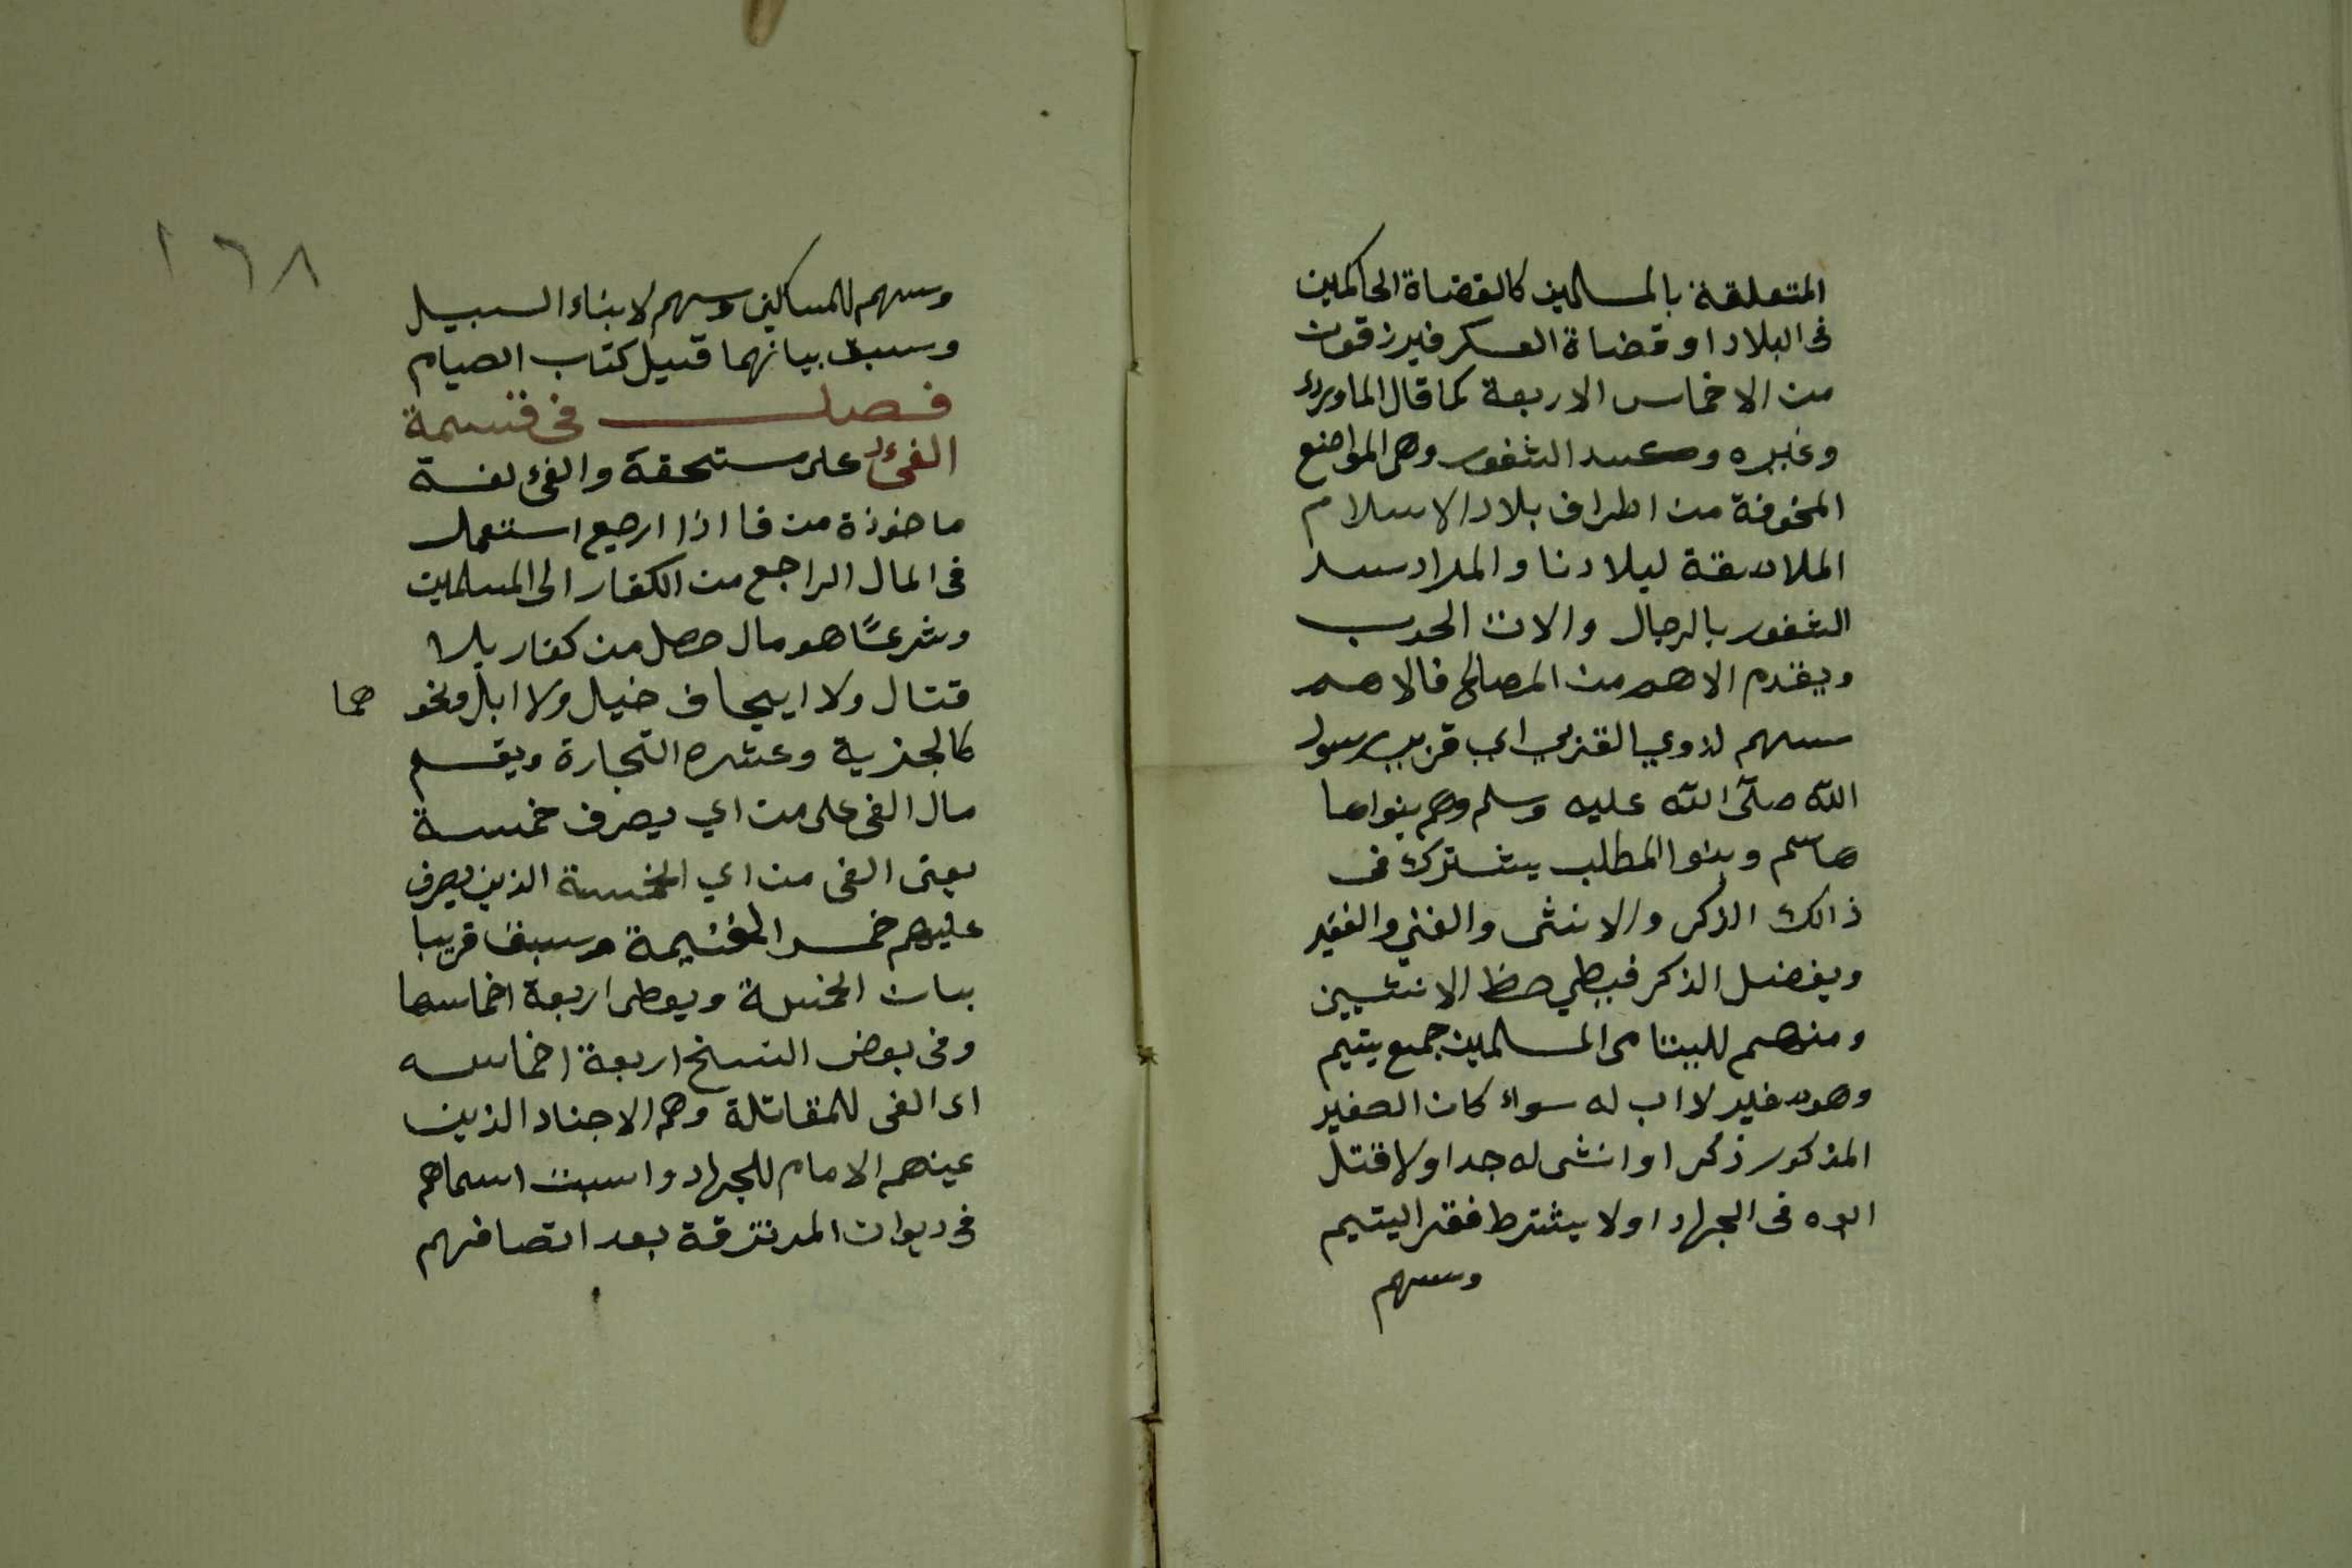 المتعلقة بالمسلمين كالقضاة الحاكمين
فى البلاد او قضاة العسكر فيرزقون
من الاخماس الاربعة كما قال الماوردى
وغيره وكسد الثغور وهى المواضع
المخوفة من اطراف بلاد الاسلام
الملاصقة لبلادنا والمراد سد
الثغور بالرجال والات الحرب
ويقدم الاهم من المصالح فالاهم
سهم لذوي القربي اي قربي رسول
الله صلى الله عليه وسلم وهم بنواها
هاشم وبنوا المطلب يشترك فى
ذالك الذكر والانثى والغني والفقير
ويفضل الذكر فيطي حظ الانثيين
ومنهم لليتامى المسلمين جمع يتيم
وهو صغير لا اب له سواء كان الصغير
المذكور ذكرا او انثى له جد اولا قتل
ابوه فى الجهاد اولا يشترط فقر اليتيم
وسهم
١٦٨
وسهم للمساكين وسهم لابناء السبيل
وسبق بيانهما قبيل كتاب الصيام
فصل فى قسمة
الفئ على مستحقة والفئ لغة
ماخوذة من فا اذا ارجع استعمل
فى المال الراجع من الكفار الى المسلمين
وشرعًا هو مال حصل من كفار بلا
قتال ولا ايجاف خيل ولا ابل ونحو هما
كالجزية وعشره التجارة ويقسم
مال الفى على من اي يصرف خمسة
يعنى الفى من اي الخمسة الذين يصرف
عليهم خمس الغنيمة وسبق قريبا
بيان الخمسة ويعطى اربعة اخماسها
وفى بعض النسخ اربعة اخماسه
اى الفى للمقاتلة وهم الاجناد الذين
عينهم الامام للجهاد واسبت اسماهم
فى ديوان المرتزقة بعد اتصافهم